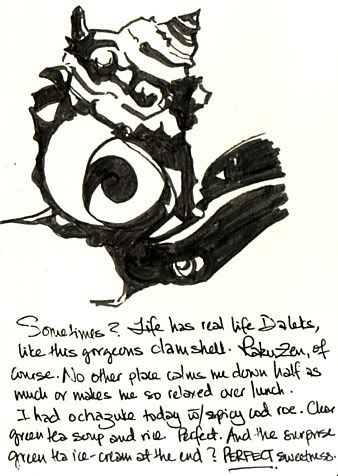 Sometimes? Life has real life Daleks,
like this gorgeous clamshell. RakuZen, of
course. No other place calms me down half as
much or makes me so relaxed over lunch.
I had ochazuke today w/spicy cod roe. Clear
green tea soup and rice. Perfect. And the surprise
green tea ice-cream at the end? PERFECT sweetness.